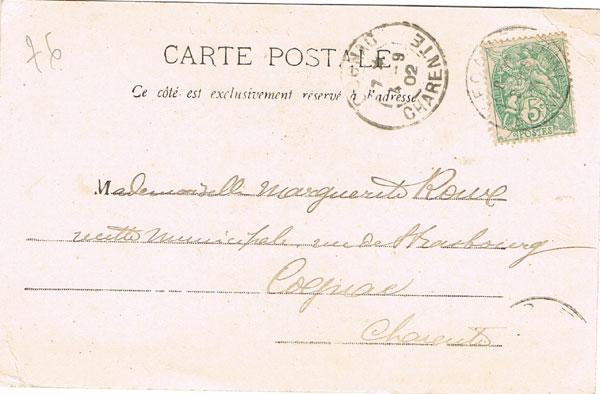 76
CARTE POSTALE
Ce côté est exclusivement réservé à l'adresse
COGNAC
4 -9
02
CHARENTE
5
POSTES
Mademoiselle Marguerite
municipale rue de Strasbourg
Cognac
Charente